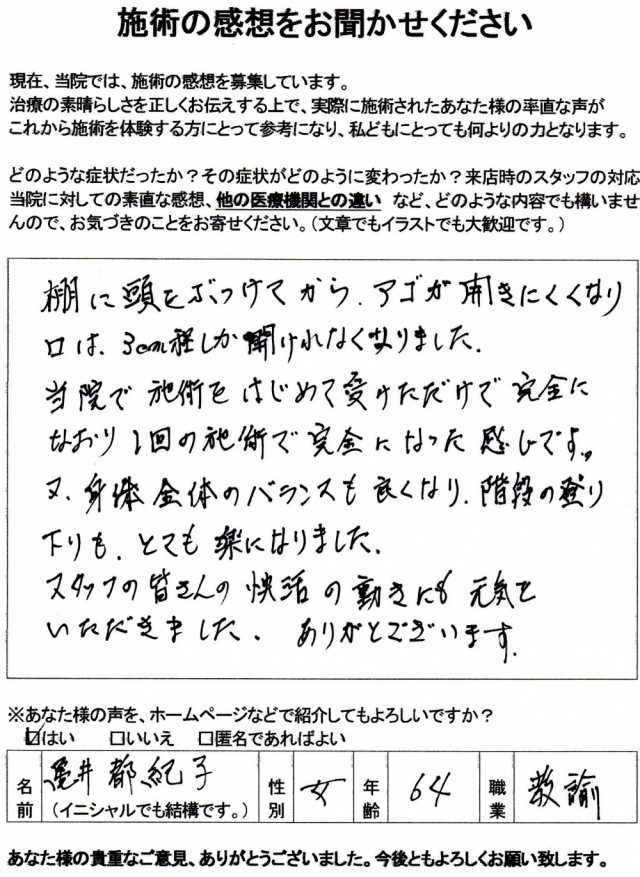 施術の感想をお聞かせください
現在、当院では、施術の感想を募集しています。
治療の素晴らしさを正しくお伝えする上で、実際に施術されたあなた様の率直な声が
これから施術を体験する方にとって参考になり、私どもにとっても何よりの力となります。
どのような症状だったか？その症状がどのように変わったか？来店時のスタッフの対応
当院に対しての素直な感想、他の医療機関との違い など、どのような内容でも構いませ
んので、お気づきのことをお寄せください。（文章でもイラストでも大歓迎です。）
棚に頭をぶつけてから、アゴが開きにくくなり
口は、3cm程しか開けれなくなりました。
当院で施術をはじめて受けただけで完全に
なおり1回の施術で完全になった感じです。
又、身体全体のバランスも良くなり、階段の登り
下りも、とても楽になりました。
スタッフの皆さんの快活の動きにも元気を
いただきました。ありがとございます。
※あなた様の声を、ホームページなどで紹介してもよろしいですか？
☑はい □いいえ □匿名であればよい
名前 亀井都紀子 （イニシャルでも結構です。） 性別 女 年齢 64 職業 教諭
あなた様の貴重なご意見、ありがとうございました。今後ともよろしくお願い致します。